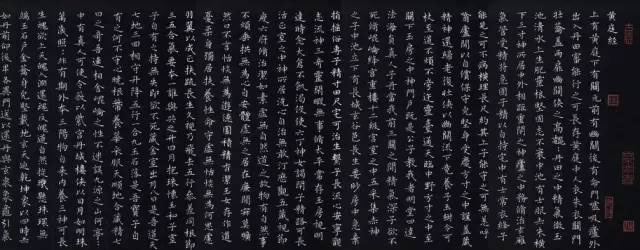 黃庭經
上有黃庭下有關元前有幽闕後有命門噓吸廬外
出入丹田審能行之可長存黃庭中人衣朱衣關門
壯籥蓋兩扉幽闕俠之高巍巍丹田之中精氣微玉
池清水上生肥靈根堅志不衰中池有士服赤朱橫
下三寸神所居中外相距重閉之神廬之中務脩治玄膺
氣管受精符急固子精以自持宅中有士常衣絳子
能見之可不病橫理長尺約其上子能守之可無恙呼
噏廬間以自償保守完堅身受慶方寸之中謹蓋藏
精神還歸老復壯俠以幽闕流下竟養子玉樹令可
壯至道不煩不旁迕靈臺通天臨中野方寸之中至
關下玉房之中神門戶既是公子教我者明堂四達
法海源真人子丹當我前三關之間精氣深子欲不
死脩崑崙絳宮重樓十二級宮室之中五采集赤神
之子中池立下有長城玄谷邑長生要眇房中急棄
捐搖俗專子精寸田尺宅可治生繫子長流心安寧觀
志流神三奇靈閑暇無事脩太平常存玉房視明
達時念大倉不飢渴役使六丁神女謁閉子精路可長
活正室之中神所居洗心自治無敢汙歷觀五藏視節
度六府脩治潔如素虛無自然道之故物有自然事
不煩垂拱無為心自安體虛無之居在廉間寂莫曠
然口不言恬惔無為遊德園積精香潔玉女存作道
憂柔身獨居扶養性命守虛無恬惔無為何思慮
羽翼以成正扶疏長生久視乃飛去五行參差同根節
三五合氣要本一誰與共之升日月抱珠懷玉和子室
子自有之持無失即欲不死藏金室出月入日是吾道天
七地三回相守升降五行一合九玉石落落是吾寶子自
有之何不守心曉根蔕養華采服天順地合藏精七
日之奇吾連相合崑崙之性不迷誤九源之山何亭亭
中有真人可使令蔽以紫宮丹城樓俠以日月如明珠
萬歲照照非有期外本三陽物自來內養三神可長
生魂欲上天魄入淵還魂反魄道自然旋璣懸珠環無
端玉石戶金籥身完堅載地玄天迴乾坤象以四時赤
如丹前仰後卑各異門送以還丹與玄泉象龜引氣